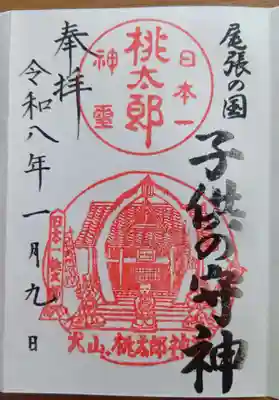 尾張の国
子供の守神
日本一
桃太郎
神霊
犬山、桃太郎神社
奉拝
令和八年一月九日